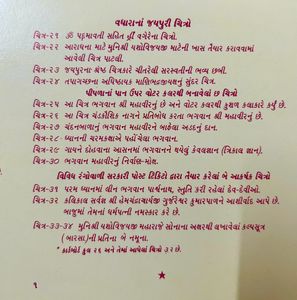 વધારાનાં જયપુરી ચિત્રો
ચિત્ર-૨૧ ૐ પદ્માવતી સહિત હ્રીં વગેરેના ચિત્રો.
ચિત્ર-૨૨ આરાધના માટે મુનિશ્રી યશોવિજયજી માટેની ખાસ તૈયાર કરાવવામાં
આવેલી ચિત્ર પાટલી.
ચિત્ર-૨૩ જયપુરના શ્રેષ્ઠ ચિત્રકારે ચીતરેલી સરસ્વતીની ભવ્ય છબી.
ચિત્ર-૨૪ તપાગચ્છના અધિષ્ઠાયક માણિભદ્રજીયક્ષનું સુંદર ચિત્ર.
પીપળાનાં પાન ઉપર વોટર કલરથી બનાવેલાં છ ચિત્રો
ચિત્ર-૨૫ આ ચિત્ર ભગવાન શ્રી મહાવીરનું છે અને વોટર કલરથી કુશળ કલાકારે કર્યું છે.
ચિત્ર-૨૬ આ ચિત્ર ચંડકૌશિક નાગને પ્રતિબોધ કરતા ભગવાન શ્રી મહાવીરનું છે.
ચિત્ર-૨૭ ચંદનબાળાનું ભગવાન મહાવીરને બાકુલા અડદનું દાન.
ચિત્ર-૨૮ ધ્યાનની ચરમકક્ષાએ પહોંચેલા ભગવાન.
ચિત્ર-૨૯ ગાયને દોહવાના આસનમાં ભગવાનને થયેલું કેવલજ્ઞાન (ત્રિકાલ જ્ઞાન).
ચિત્ર-૩૦ ભગવાન મહાવીરનું નિર્વાણ-મોક્ષ.
વિવિધ રંગોવાળી સરકારી પોસ્ટ ટિકિટો દ્વારા તૈયાર કરેલાં બે આકર્ષક ચિત્રો
ચિત્ર-૩૧ પરમ ધ્યાનમાં લીન ભગવાન પાર્શ્વનાથ, સ્તુતિ કરી રહેલાં દેવ-દેવીઓ.
ચિત્ર-૩૨ કલિકાલ સર્વજ્ઞ શ્રી હેમચંદ્રાચાર્યજી ગુર્જરેશ્વર કુમારપાળને આશીર્વાદ આપે છે.
બાજુમાં તેમનાં ધર્મપત્ની નમસ્કાર કરે છે.
ચિત્ર-૩૩-૩૪ મુનિશ્રી યશોવિજયજી મહારાજે સોનાના અક્ષરથી લખાવેલાં કલ્પસૂત્ર
(બારસા)ની પ્રતિના બે નમૂના.
* કાર્ડબોર્ડ કુલ ૨૬ અને તેમાં આપેલાં ચિત્રો ૩૨ છે.
૧